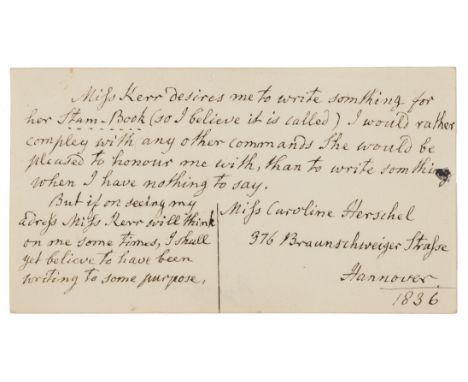 Miſs Kerr desires me to write somthing for
her Stam-Book (so I believe it is called) I would rather
compley with any other commands She would be
pleased to honour me with, than to write somthing
when I have nothing to say.
But if on seeing my
adreſs Miſs Kerr will think
on me some times, I shall
yet believe to have been
writing to some purpose.
Miſs Caroline Herschel
376 Braunschweiger Straſse
Hannover
1836